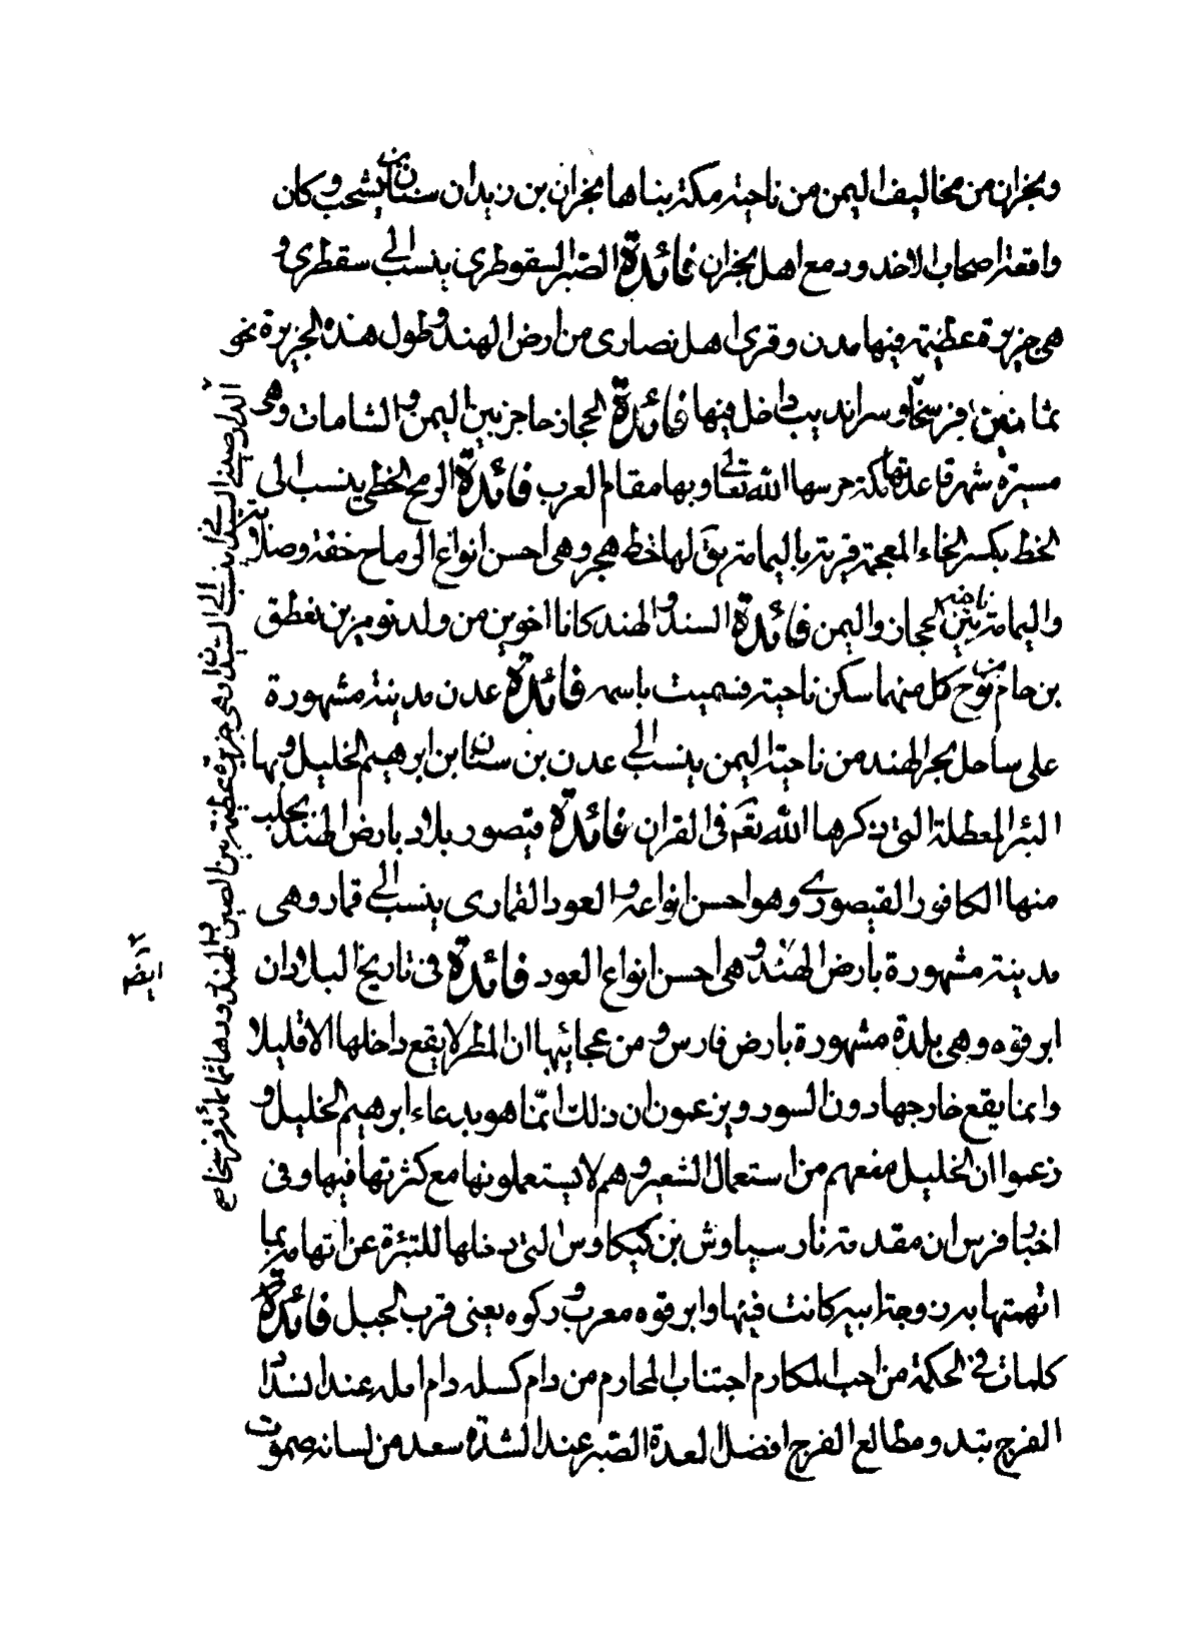 ونجران من مخاليف اليمن من ناحية مكة بناها نجران بن زيدان سنان بن يشحب وكان
واقعة اصحاب الاخدود مع اهل نجران فائدة الصبر السقوطرى ينسب الى سقطرى و
هى جزيرة عظيمة فيها مدن وقرى اهل نصارى من ارض الهند وطول هذه الجزيرة نحو
ثمانين فرسخا وسرانديب داخل فيها فائدة الحجاز حاجز بين اليمن والشامات وهى
مسيرة شهر قاعدتها مكة حرسها الله تعالى وبها مقام العرب فائدة الرمح الخطى ينسب الى
الخط بكسر الخاء المعجمة قرية باليمامة يق لها خط هجر وهى احسن انواع الرماح خفة وصلا
واليمامة ناحية بين الحجاز واليمن فائدة السند والهند كانا اخوين من ولد توميزين يغطق
بن حام بن نوح كل منهما سكن ناحية فسميت باسمه فائدة عدن مدينة مشهورة
على ساحل بحر الهند من ناحية اليمن ينسب الى عدن بن سنان بن ابرهيم الخليل وبها
البئر المعطلة التى ذكرها الله تعم فى القران فائدة قيصور بلاد بارض الهند يجلب
منها الكافور القيصورى وهو احسن انواعه والعود القمارى ينسب الى قمار وهى
مدينة مشهورة بارض الهند وهى احسن انواع العود فائدة فى تاريخ البلادان
ابرقوه وهى بلدة مشهورة بارض فارس ومن عجائبها ان المطر لا يقع داخلها الا قليلا
وانما يقع خارجها دون السور ويزعمون ان ذلك انما هو بدعاء ابرهيم الخليل و
زعموا ان الخليل منعهم من استعمال الشعير وهم لا يستعملونها مع كثرتها فيها وفى
اخبار فرس ان مقدمة نار سياوش بن كيكاوس التى دخلها للتبئرة عن اتهامه بما
اتهمتها به زوجة ابيه كانت فيها وابرقوه معرب وركوه يعنى قرب الجبل فائدة
كلمات فى الحكمة من احب المكارم اجتناب المحارم من دام كسله دام امله عند انسداد
الفرج تبدو مطالع الفرج افضل العدة الصبر عند الشدة سعد من لسانه صموت
الدار صينى السيلانى ينسب الى السيلان وهى جزيرة عظيمة بين الصين والهند ودورها ثمانمائة فرسخا
١٢
ايضا